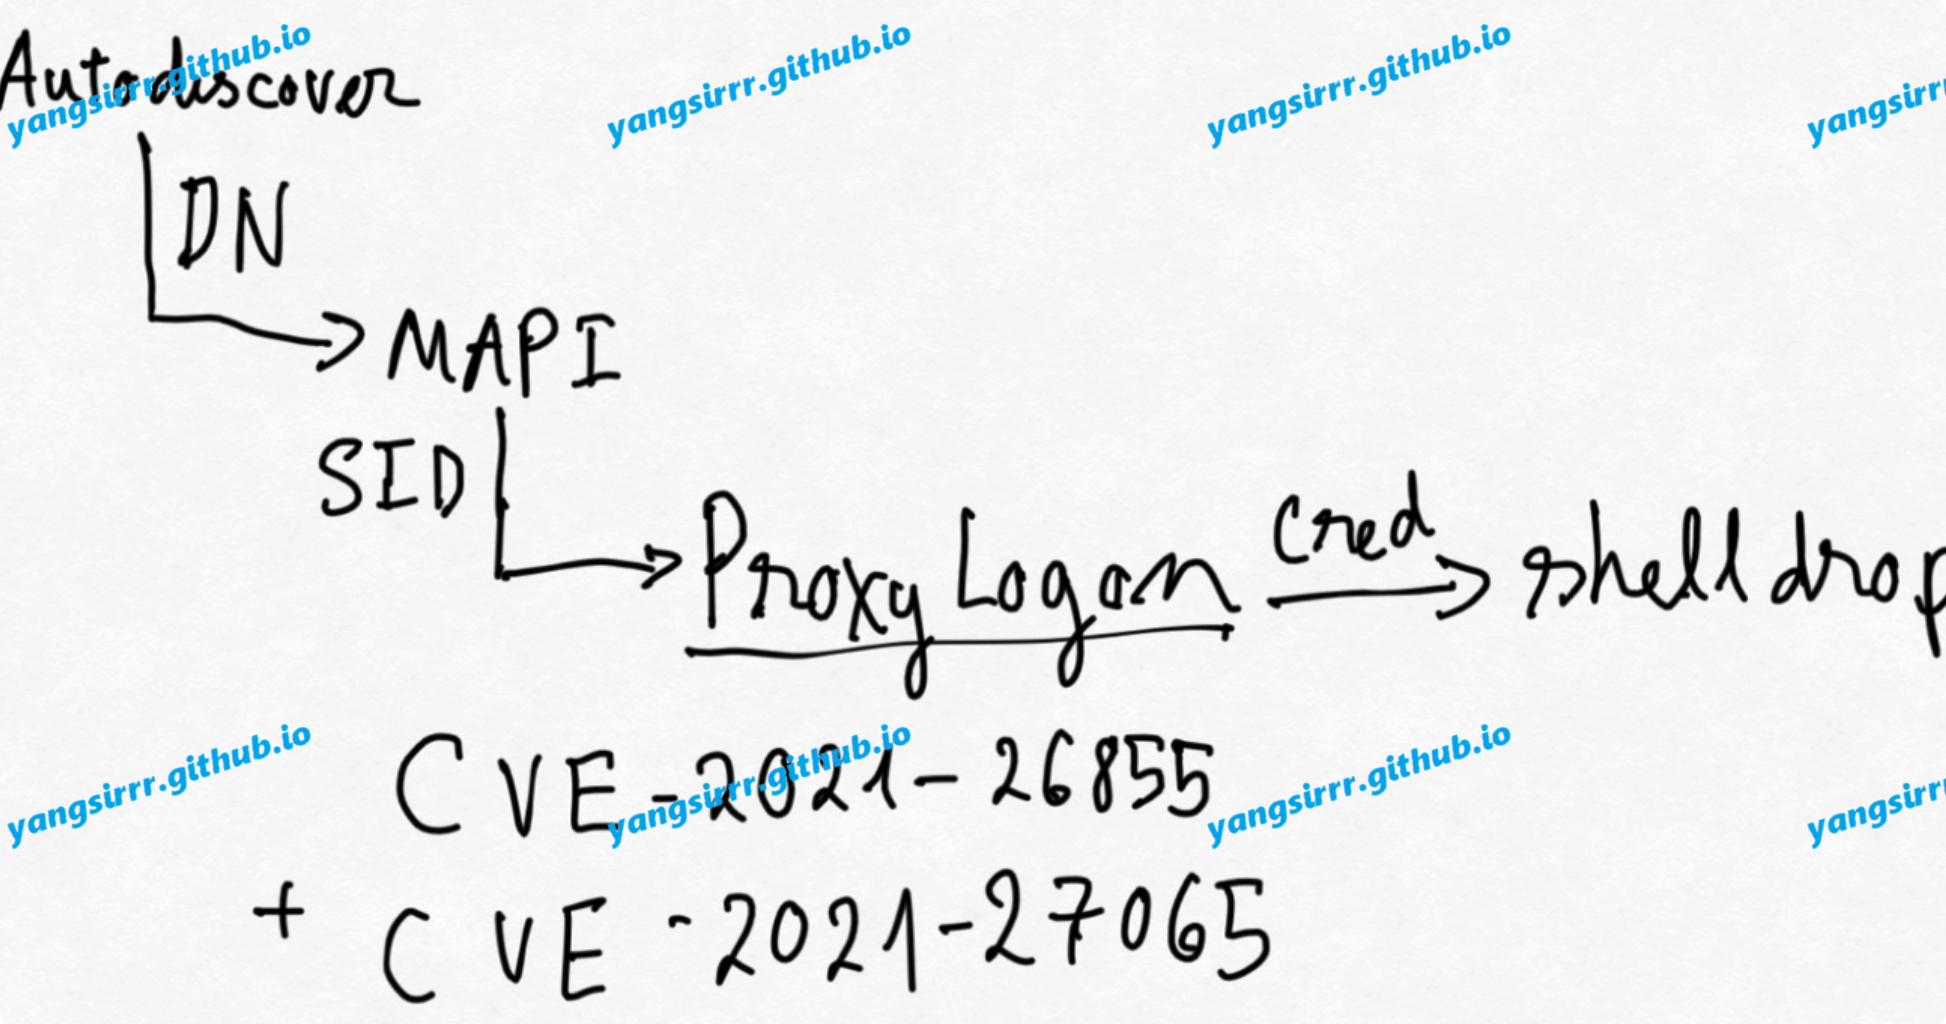 Autodiscover
yangsirrr.github.io
yangsirrr.github.io
yangsirrr.github.io
yangsirr
DN
MAPI
SID
ProxyLogon
Cred
shell drop
yangsirrr.github.io
yangsirrr.github.io
yangsirrr.github.io
yangsirr
CVE-2021-26855
+ CVE-2021-27065